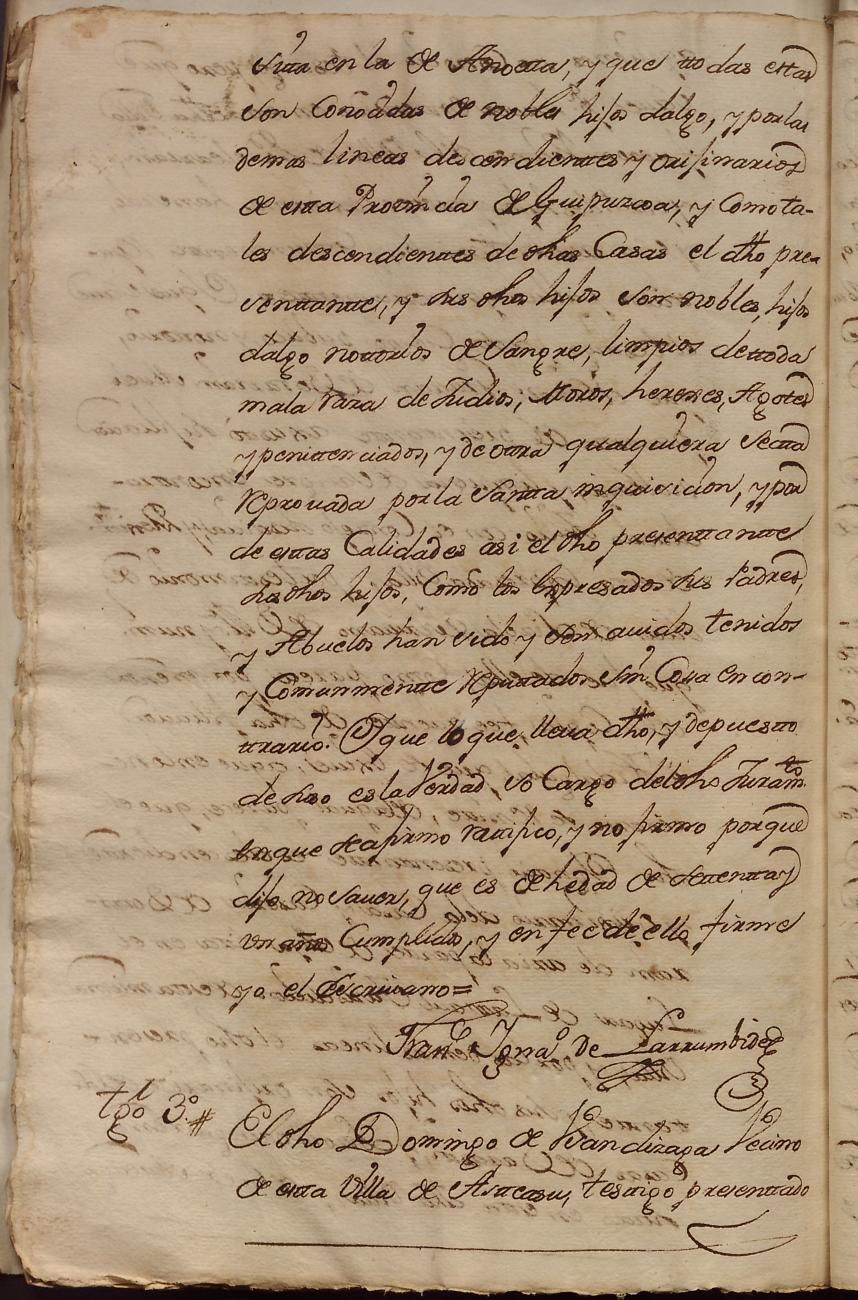 sita en la de Andoeta, y que ttodas esttas
son Conocidas de nobles hijos dalgo, y por las
demas lineas descendienttes y orijinarios
de esta Provincia de Guipuzcoa, y Como ta-
les descendienttes de dhas Casas el dho pre-
senttante, y sus dhos hijos son nobles, hijos
dalgo nottorios de Sangre, limpios de ttoda
mala raza de Judios, Moros, herexes, Agotes
y penittenciados, y de otra qualquiera Sectta
reprouada por la Santta inquisicion, y por
de esttas Calidades asi el dho presenttante
sus dhos hijos, Como los expresados sus Padres,
y Abuelos han sido y son auidos tenidos
y Comunmentte reputtados sin Cosa en con-
ttrario. Y que lo que lleua dho, y depuestto
de suso es la Verdad, so Cargo del dho Juramto
en que se afirmo ratifico, y no firmo porque
dijo no sauer, que es de hedad de settentta y
un años Cumplidos, y en fee de ello firme
yo el Escriuano=
Franco Ignao de Larrumbide
tgo 3o # El dho Domingo de Vandizaga Vecino
de esta Villa de Asteasu, testtigo presenttado